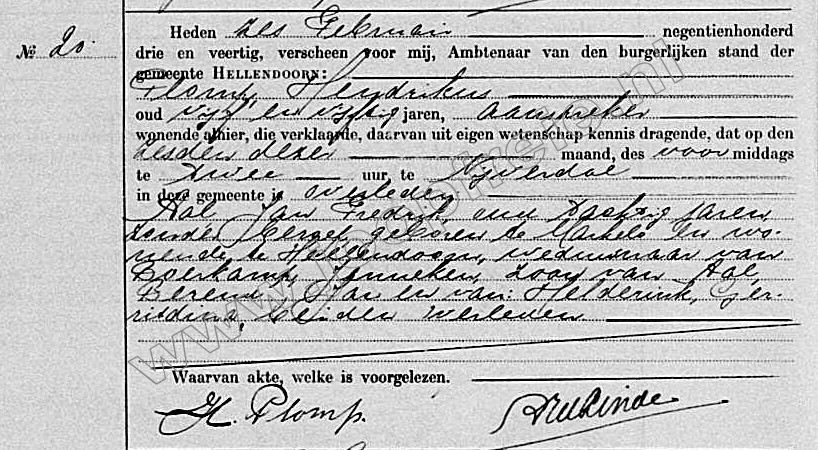 № 20. Heden zes Februari negentienhonderd
drie en veertig, verscheen voor mij, Ambtenaar van den burgerlijken stand der
gemeente HELLENDOORN:
Plomp, Hendrikus
oud vijf en vijftig jaren, aanspreker
wonende alhier, die verklaarde, daarvan uit eigen wetenschap kennis dragende, dat op den
zesden dezer maand, des voormiddags
te twee uur, te Nijverdal
in deze gemeente is overleden
Aal Jan Fredrik, een tachtig jaren
zonder beroep, geboren te Markelo en wo-
nende te Hellendoorn, weduwnaar van
Boerkamp, Janneken, zoon van Aal,
Berend Jan en van: Helderink, Ger-
ritdina, beiden overleden
Waarvan akte, welke is voorgelezen.
H. Plomp.